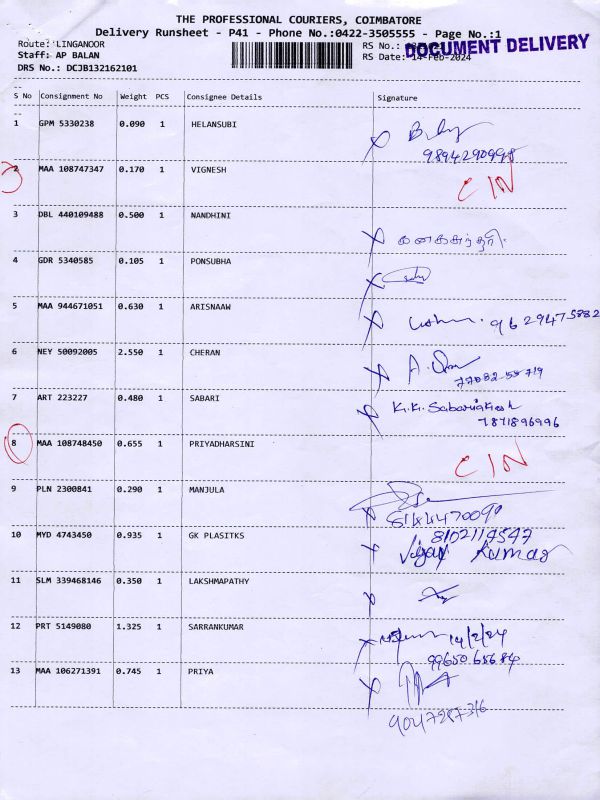 THE PROFESSIONAL COURIERS, COIMBATORE
Delivery Runsheet - P41 - Phone No.:0422-3505555 - Page No.:1
Route: LINGANOOR
RS No.:
DOCUMENT DELIVERY
Staff: AP BALAN
RS Date: 14-Feb-2024
DRS No.: DCJB132162101
S No Consignment No Weight PCS Consignee Details Signature
1 GPM 5330238 0.090 1 HELANSUBI
9894290998
2 MAA 108747347 0.170 1 VIGNESH CIN
3 DBL 440109488 0.500 1 NANDHINI
4 GDR 5340585 0.105 1 PONSUBHA
5 MAA 944671051 0.630 1 ARISNAAW
9629475882
6 NEY 50092005 2.550 1 CHERAN
77082-55719
7 ART 223227 0.480 1 SABARI
7871896996
8 MAA 108748450 0.655 1 PRIYADHARSINI CIN
9 PLN 2300841 0.290 1 MANJULA
8102114547
10 MYD 4743450 0.935 1 GK PLASITKS Vijay Kumar
11 SLM 339468146 0.350 1 LAKSHMAPATHY
12 PRT 5149080 1.325 1 SARRANKUMAR 14/2/24
99650 65684
13 MAA 106271391 0.745 1 PRIYA
9047287316